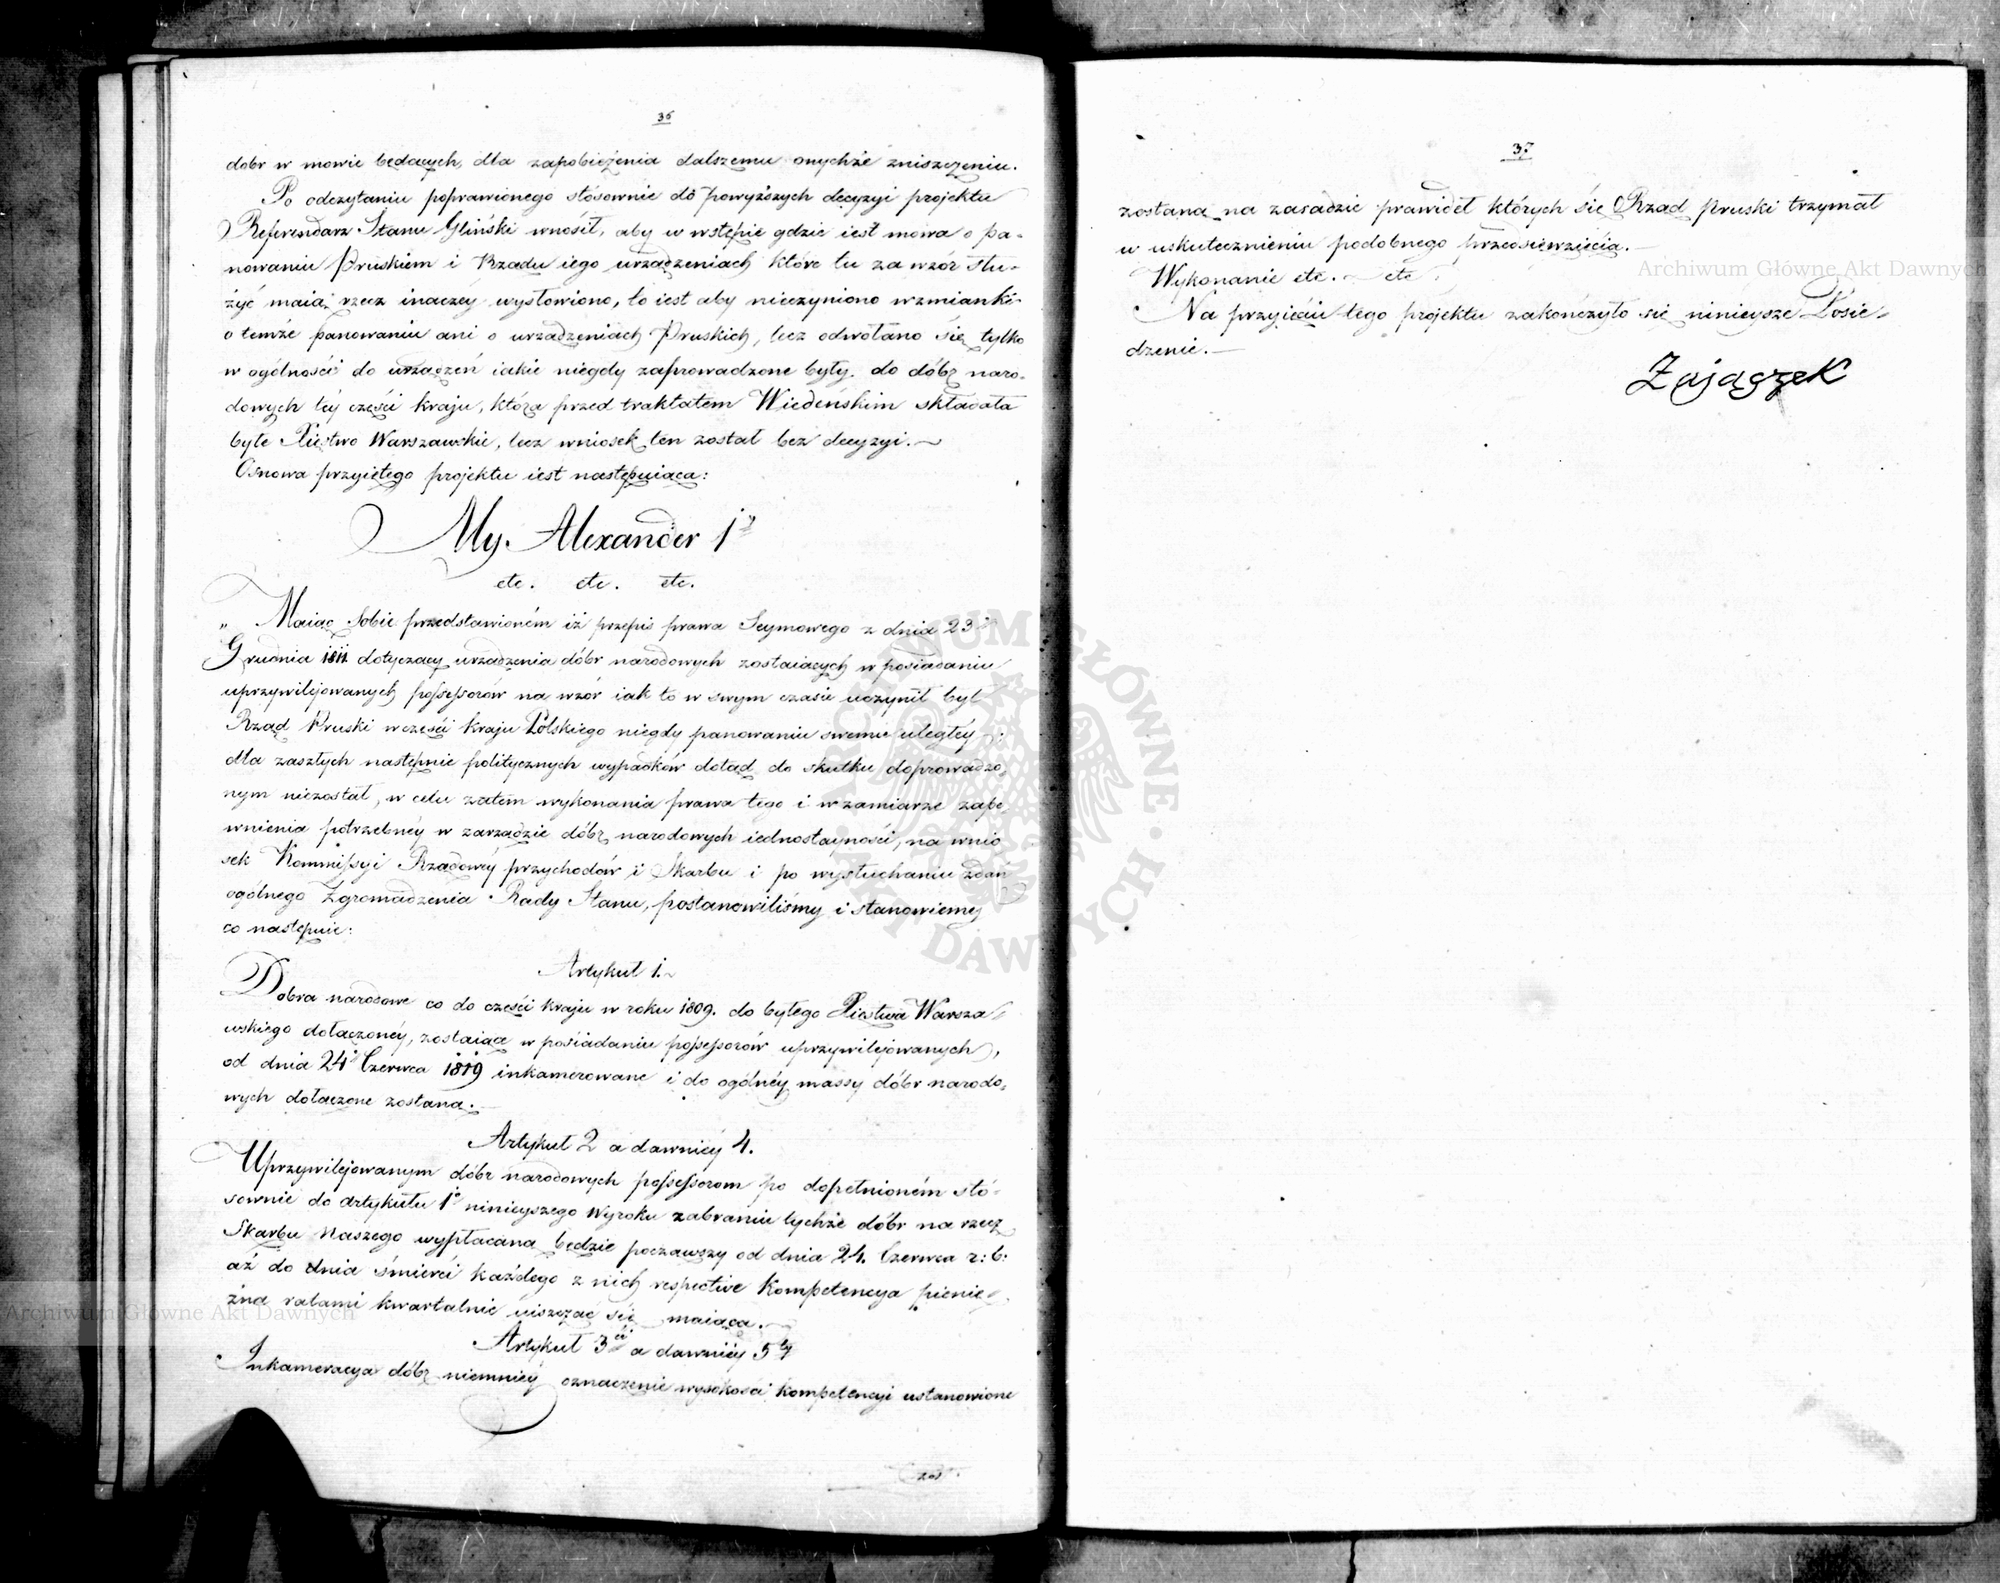 36
dobr w mowie będących, dla zapobieżenia dalszemu onychże zniszczeniu.
Po odczytaniu poprawionego stósownie do powyższych decyzyi projektu
Referendarz Stanu Gliński wnósił, aby w wstępie gdzie iest mowa o pa-
nowaniu Pruskiem i Rządu iego urządzeniach które tu za wzór słu-
żyć maią, rzecz inaczéy wysłowiono, to iest aby nieczyniono wzmianki
o temże panowaniu ani o urządzeniach Pruskich, lecz odwołano się tylko
w ogólności do urządzeń iakie niegdy zaprowadzone były do dóbr naro-
dowych téy części kraju, która przed traktatem Wiedeńskim składała
byłe Xięstwo Warszawskie, lecz wniosek ten został bez decyzyi.
Osnowa przyiętego projektu iest następuiąca:
My Alexander 1y
etc. etc. etc.
„ Maiąc sobie przedstawioném iż przepis prawa Seymowego z dnia 23
Grudnia 1811 dotyczący urządzenia dóbr narodowych zostaiących w posiadaniu
uprzywilejowanych possessorów na wzór iak to w swym czasie uczynił był
Rząd Pruski w części kraju Polskiego niegdy panowaniu swemu uległéy
dla zaszłych następnie politycznych wypadków dotąd do skutku doprowadzo-
nym niezostał, w celu zatem wykonania prawa tego i w zamiarze zape-
wnienia potrzebnéy w zarządzie dóbr narodowych iednostayności, na wnio
sek Kommissyi Rządowéy przychodów i Skarbu i po wysłuchaniu zdań
ogólnego Zgromadzenia Rady Stanu, postanowiliśmy i stanowiemy
co następuie:
Artykuł 1.
Dobra narodowe co do części kraju w roku 1809. do byłego Xięstwa Warsza-
wskiego dołączonéy, zostaiące w posiadaniu possessorów uprzywilejowanych,
od dnia 24 Czerwca 1819 inkamerowane i do ogólnéy massy dóbr narodo-
wych dołączone zostaną.
Artykuł 2 a dawniéy 4.
Uprzywilejowanym dóbr narodowych possessorom po dopełnioném stó-
sownie do artykułu 1o ninieyszego Wyroku zabraniu tychże dóbr na rzecz
Skarbu Naszego wypłacana będzie począwszy od dnia 24. Czerwca r: b:
aż do dnia śmierci każdego z nich respective kompetencya pienię-
żna ratami kwartalnie uiszczać się maiąca.
Artykuł 3ci a dawniéy 5ty
Inkameracya dóbr niemniéy oznaczenie wysokości kompetencyi ustanowione
zos
37
zostaną na zasadzie prawideł których się Rząd Pruski trzymał
w uskutecznieniu podobnego przedsięwzięcia.
Wykonanie etc. etc
Na przyięciu tego projektu zakończyło się ninieysze Posie-
dzenie.
Zajączek
Archiwum Główne Akt Dawnych
Archiwum Główne Akt Dawnych
ARCHIWUM GŁÓWNE AKT DAWNYCH